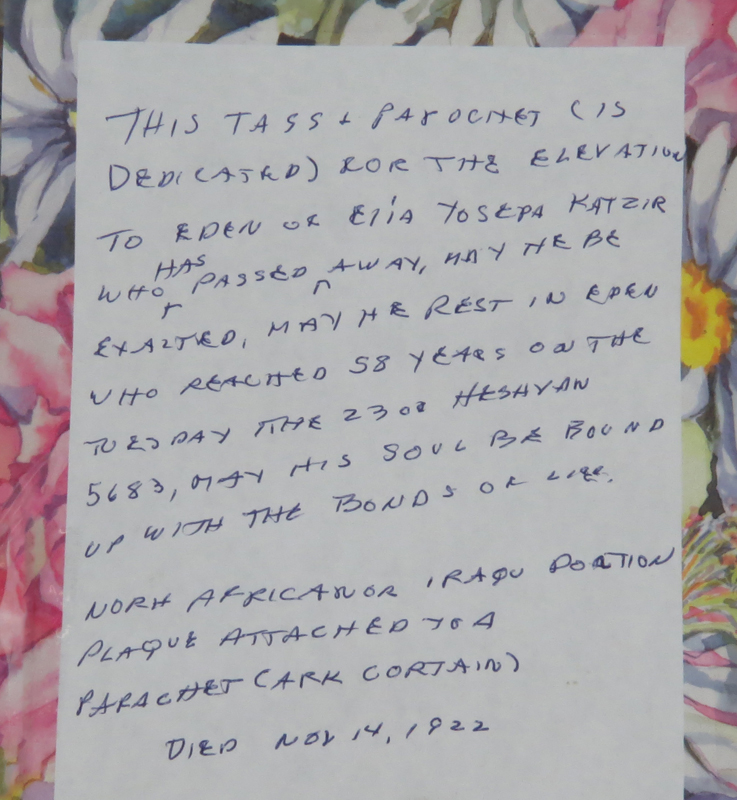 THIS TASS + PAROCHET (IS
DEDICATED) FOR THE ELEVATION
TO EDEN OF ElíA YOSEPA KATZIR
WHO HAS PASSED AWAY, MAY HE BE
EXALTED, MAY HE REST IN EDEN
WHO REACHED 58 YEARS ON THE
TUESDAY THE 23 OF HESHVAN
5683, MAY HIS SOUL BE BOUND
UP WITH THE BONDS OF LIFE.
NORH AFRICAN OR IRAQU DONTION
PLAQUE ATTACHED TO A
PARACHET (ARK CORTAIN)
DIED NOV 14, 1922